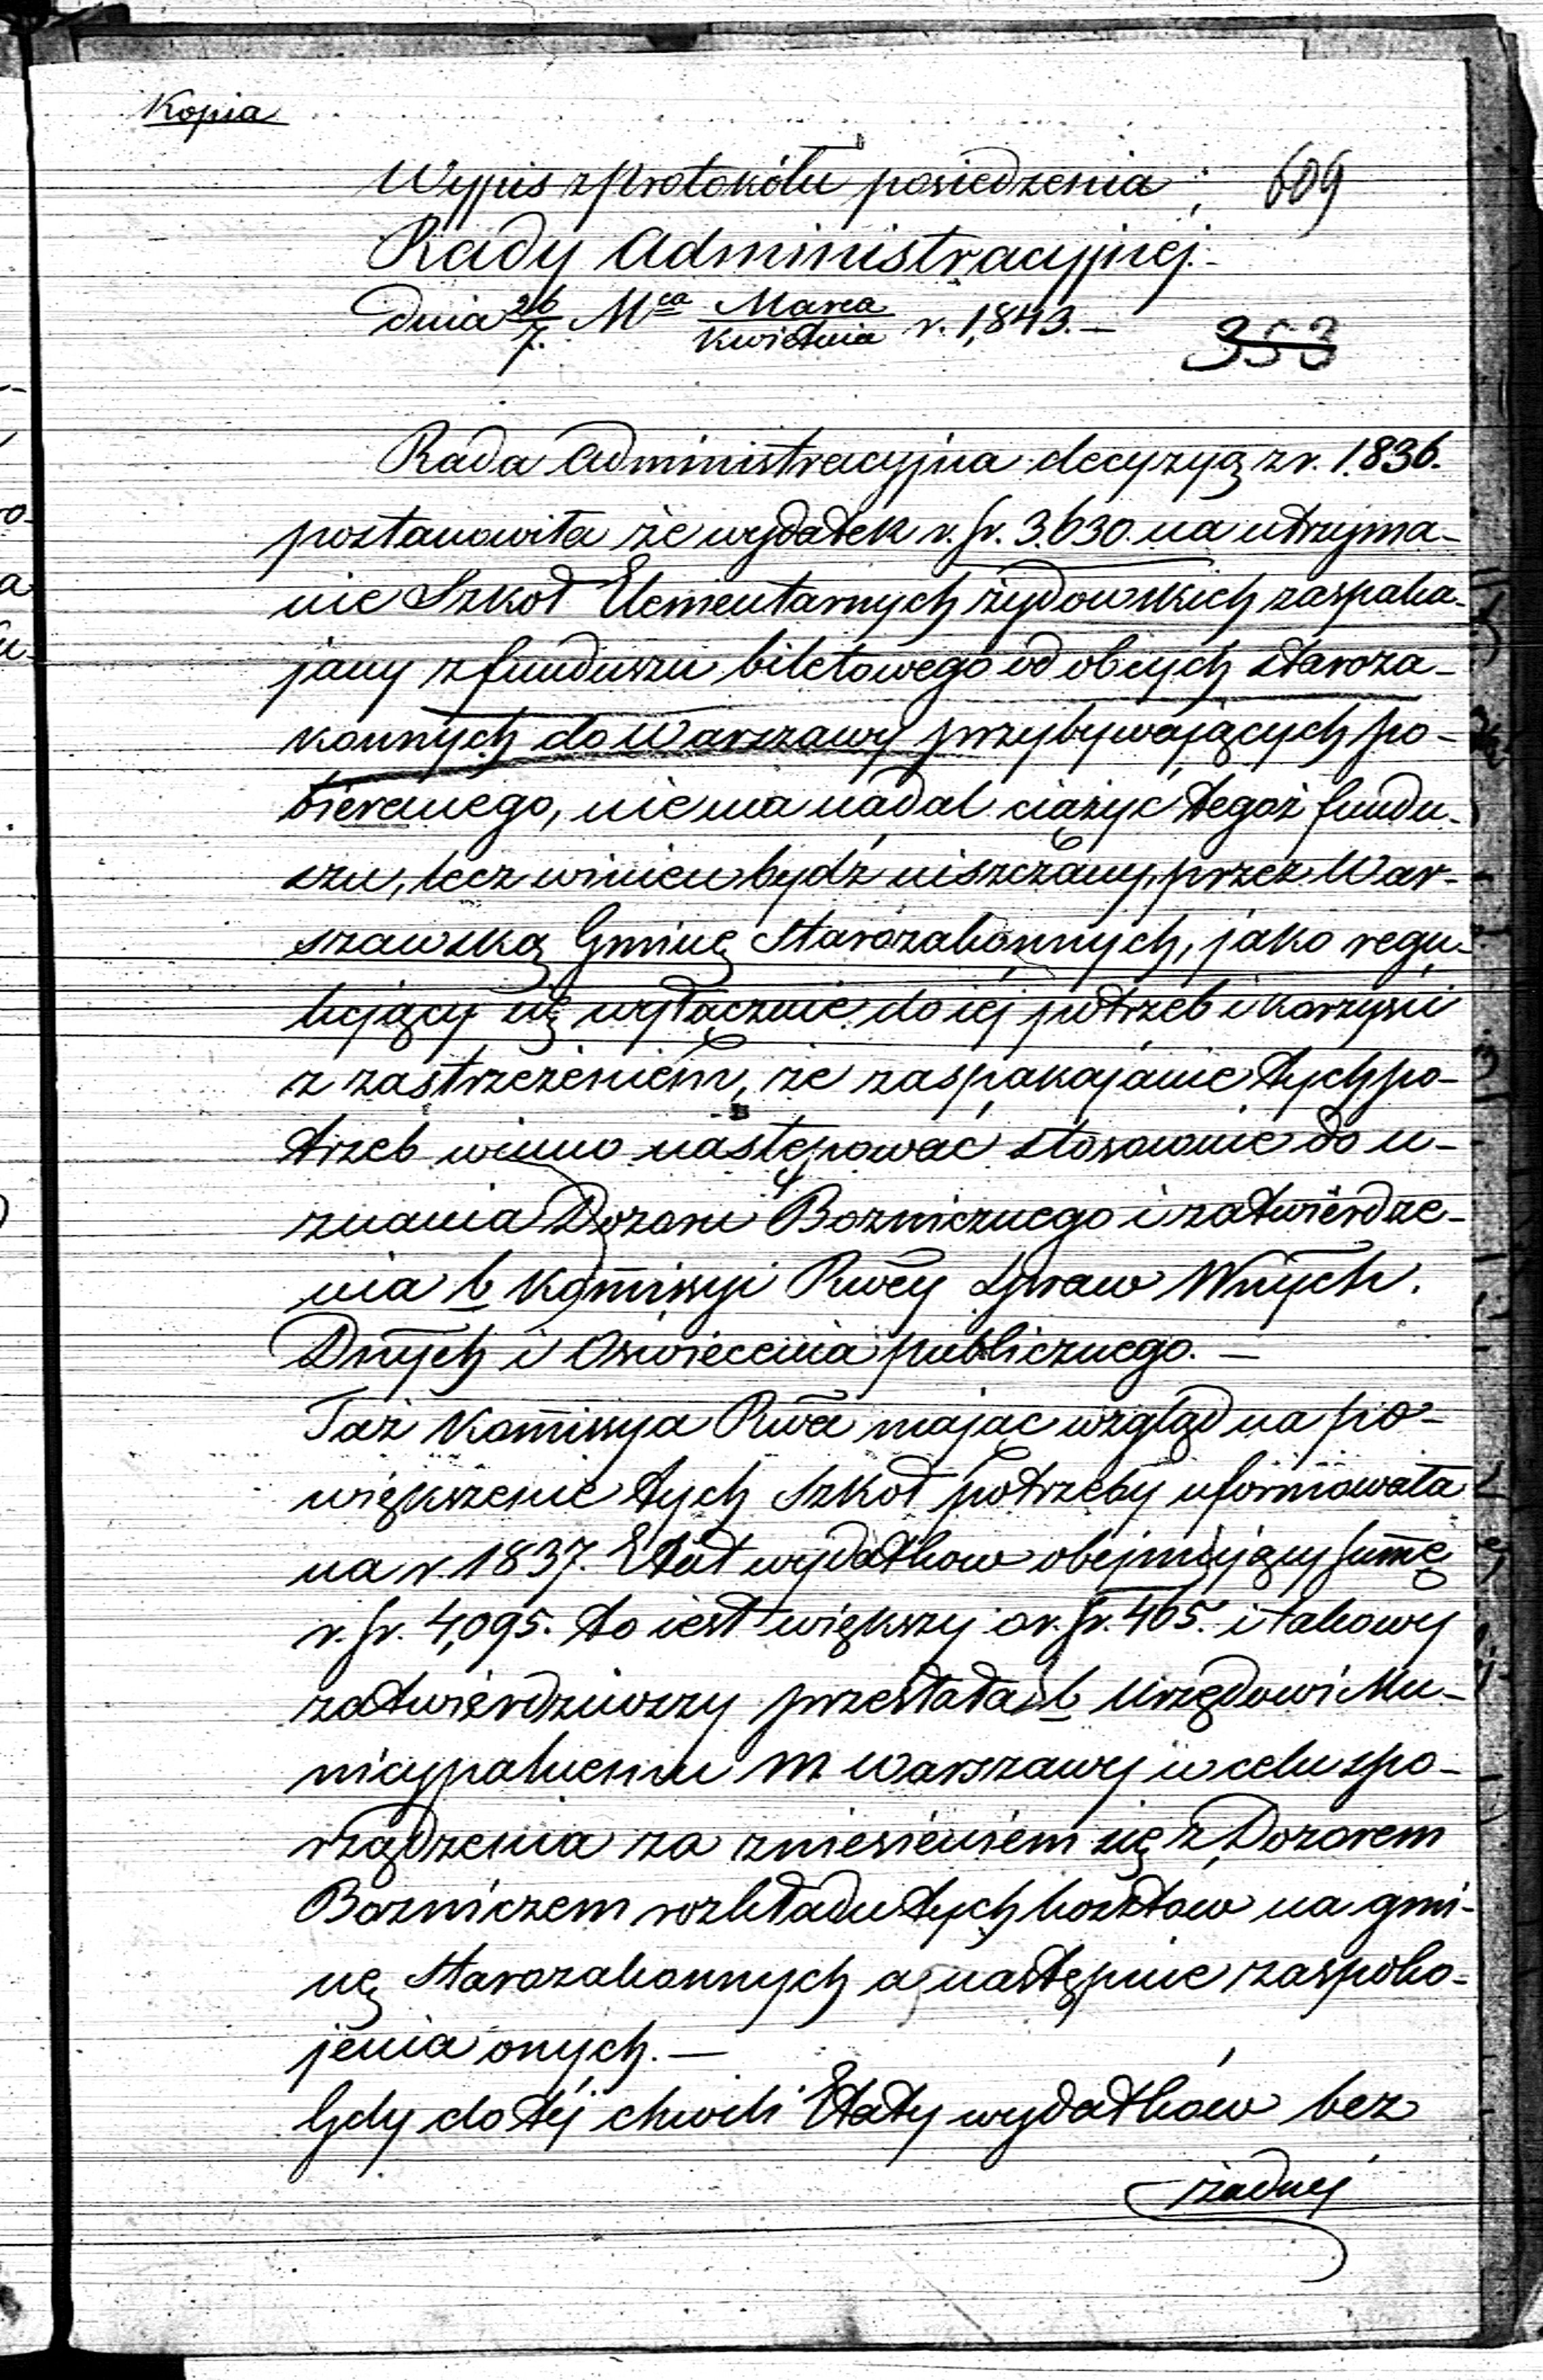 Kopia
Wypis z Protokółu posiedzenia; 609
Rady Administracyjnej.
dnia 26/7. Mca Marca/Kwietnia r. 1,843.—
353
Rada Administracyjna decyzyą z r. 1.836.
postanowiła że wydatek r. sr. 3.630. na utrzyma-
nie Szkół Elementarnych żydowskich zaspaka-
jany z funduszu biletowego od obcych staroza-
konnych do Warszawy przybywających po-
bieranego, nie ma nadal ciążyć tegoż fundu-
szu, lecz winien bydź uiszczany, przez War-
szawską Gminę Starozakonnych, jako regu-
lujący się wyłącznie do iej potrzeb i korzyści
z zastrzeżeniem, że zaspakajanie tych po-
trzeb winno następować stosownie do u-
znania Dozoru Bozniczego i zatwierdze-
nia b Komissyi Rwéy Spraw Wnych.
Dnych i Oswiecenia publicznego.—
Taż Komissya Rwa mając wzgląd na po-
większenie tych Szkół potrzeby uformowała
na r. 1837. Etat wydatkow obejmujący summę
r. sr. 4,095. to iest większy o r. sr. 465. i takowy
zatwierdziwszy przesłała b Urzędowi Mu-
nicypalnemu M Warszawy w celu spo-
rządzenia za zniesieniem się z Dozorem
Bozniczem rozkładu tych kosztow na gmi-
nę Starozakonnych a następnie zaspoko-
jenia onych.—
Gdy do téj chwili Etaty wydatków bez
żadnej